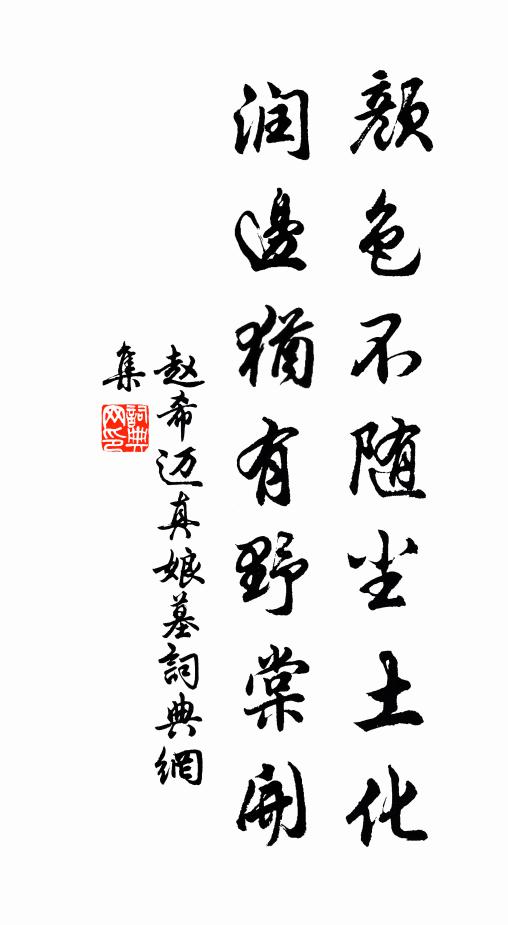 颜色不随尘土化
润邊猶有野棠開
赵希迈真娘墓詞典網
集
詞典网印